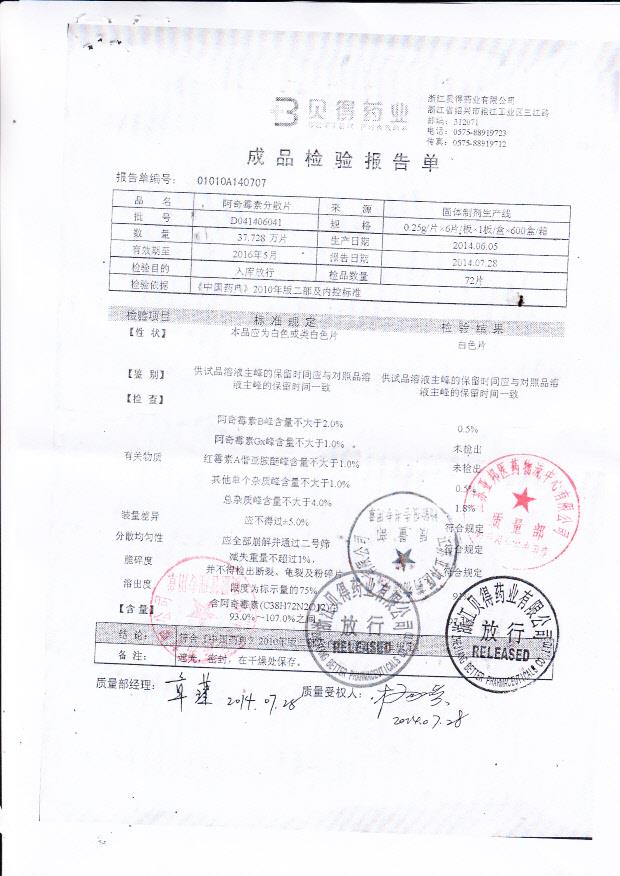 贝得药业
浙江贝得药业有限公司
浙江省绍兴市袍江工业区三江路
邮编：312071
电话：0575-88919723
传真：0575-88919712
成品检验报告单
报告单编号： 01010A140707
品 名 阿奇霉素分散片 来 源 固体制剂生产线
批 号 D041406041 规 格 0.25g/片×6片/板×1板/盒×600盒/箱
数 量 37.728 万片 生产日期 2014.06.05
有效期至 2016年5月 报告日期 2014.07.28
检验目的 入库放行 检品数量 72片
检验依据 《中国药典》2010年版二部及内控标准
检验项目 标准规定 检验结果
【性 状】 本品应为白色或类白色片 白色片
【鉴 别】 供试品溶液主峰的保留时间应与对照品溶液主峰的保留时间一致 供试品溶液主峰的保留时间应与对照品溶液主峰的保留时间一致
【检 查】
阿奇霉素B峰含量不大于2.0% 0.5%
阿奇霉素Gx峰含量不大于1.0% 未检出
有关物质 红霉素A偕亚胺醚峰含量不大于1.0% 未检出
其他单个杂质峰含量不大于1.0% 0.5%
总杂质峰含量不大于4.0% 1.8%
装量差异 应不得过±5.0% 符合规定
分散均匀性 应全部崩解并通过二号筛 符合规定
脆碎度 减失重量不超过1%，
并不得检出断裂、龟裂及粉碎片 符合规定
溶出度 限度为标示量的75%
【含 量】 含阿奇霉素(C38H72N2O12)
93.0%～107.0%之间
结 论： 符合《中国药典》2010年版
备 注： 遮光，密封，在干燥处保存。
质量部经理： 2014.07.28 质量受权人：
2014.07.28
医药物流中心有限公司
质量部
浙江贝得药业有限公司
放行
RELEASED
ZHEJIANG BETTER PHARMACEUTICALS CO.
浙江贝得药业有限公司
放行
RELEASED
ZHEJIANG BETTER PHARMACEUTICALS CO.